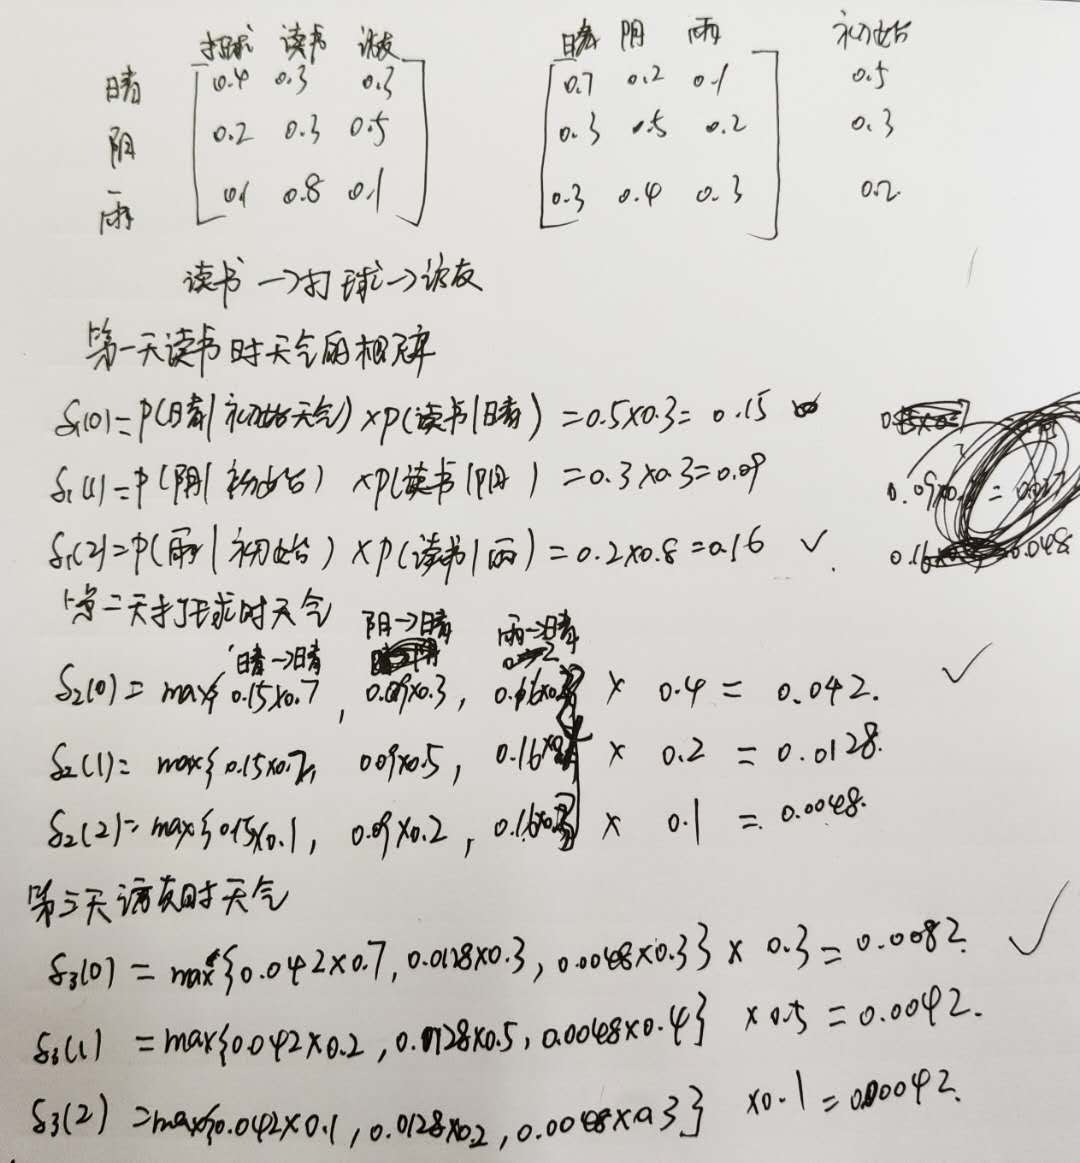 打球 读书 访友 晴 阴 雨 初始
晴 0.4 0.3 0.3 0.7 0.2 0.1 0.5
阴 0.2 0.3 0.5 0.3 0.5 0.2 0.3
雨 0.1 0.8 0.1 0.3 0.4 0.3 0.2
读书→打球→访友
第一天读书时天气的概率
δ1(0)=P(晴|初始天气)×P(读书|晴)=0.5×0.3=0.15
δ1(1)=P(阴|初始)×P(读书|阴)=0.3×0.3=0.09
δ1(2)=P(雨|初始)×P(读书|雨)=0.2×0.8=0.16 ✓
0.16 0.048
第二天打球时天气
晴→晴 阴→晴 雨→晴
δ2(0)=max{0.15×0.7, 0.09×0.3, 0.16×0.3}×0.4=0.042. ✓
δ2(1)=max{0.15×0.2, 0.09×0.5, 0.16× }×0.2=0.0128.
δ2(2)=max{0.15×0.1, 0.09×0.2, 0.16×0.3}×0.1=0.0048.
第三天访友时天气
δ3(0)=max{0.042×0.7, 0.0128×0.3, 0.0048×0.3}×0.3=0.0082. ✓
δ3(1)=max{0.042×0.2, 0.0128×0.5, 0.0048×0.4}×0.5=0.0042.
δ3(2)=max{0.042×0.1, 0.0128×0.2, 0.0048×0.3}×0.1=0.00042.